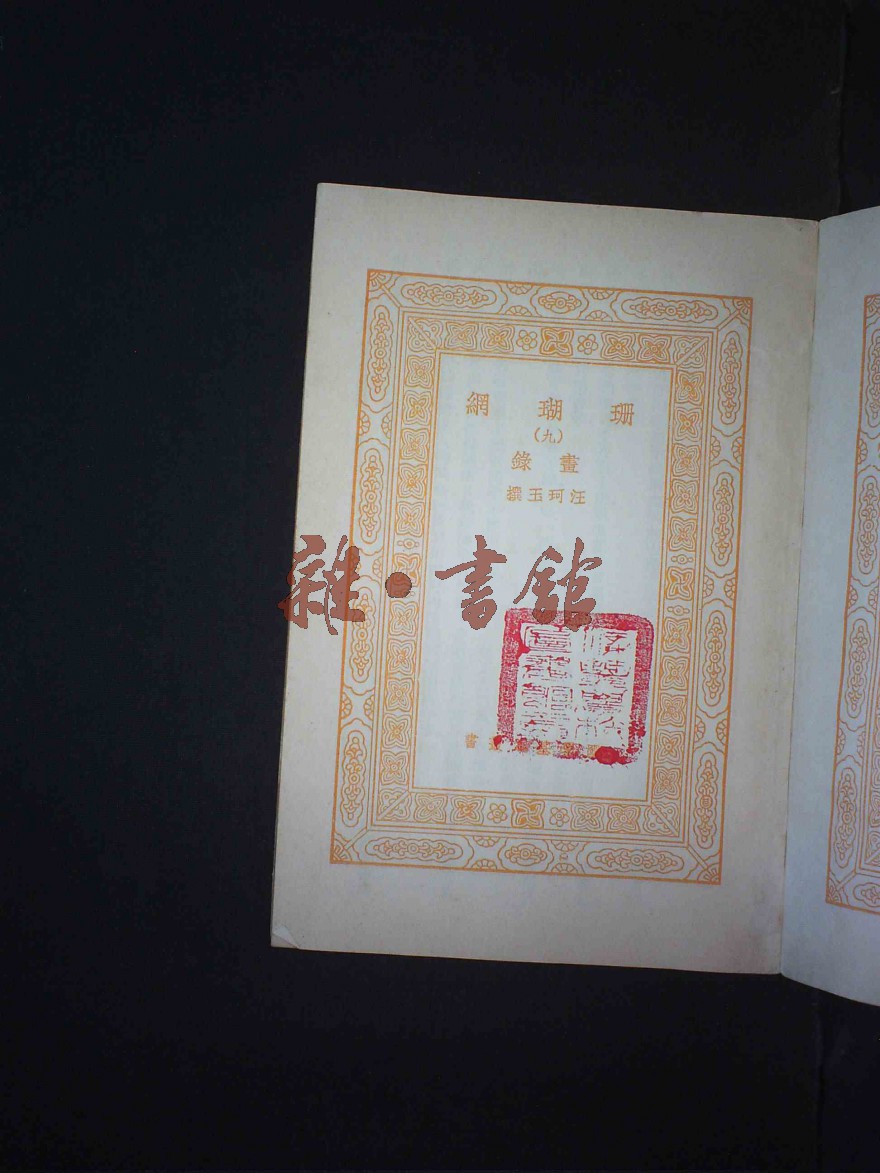 珊瑚網
(九)
畫錄
汪珂玉撰
雜·書館
書